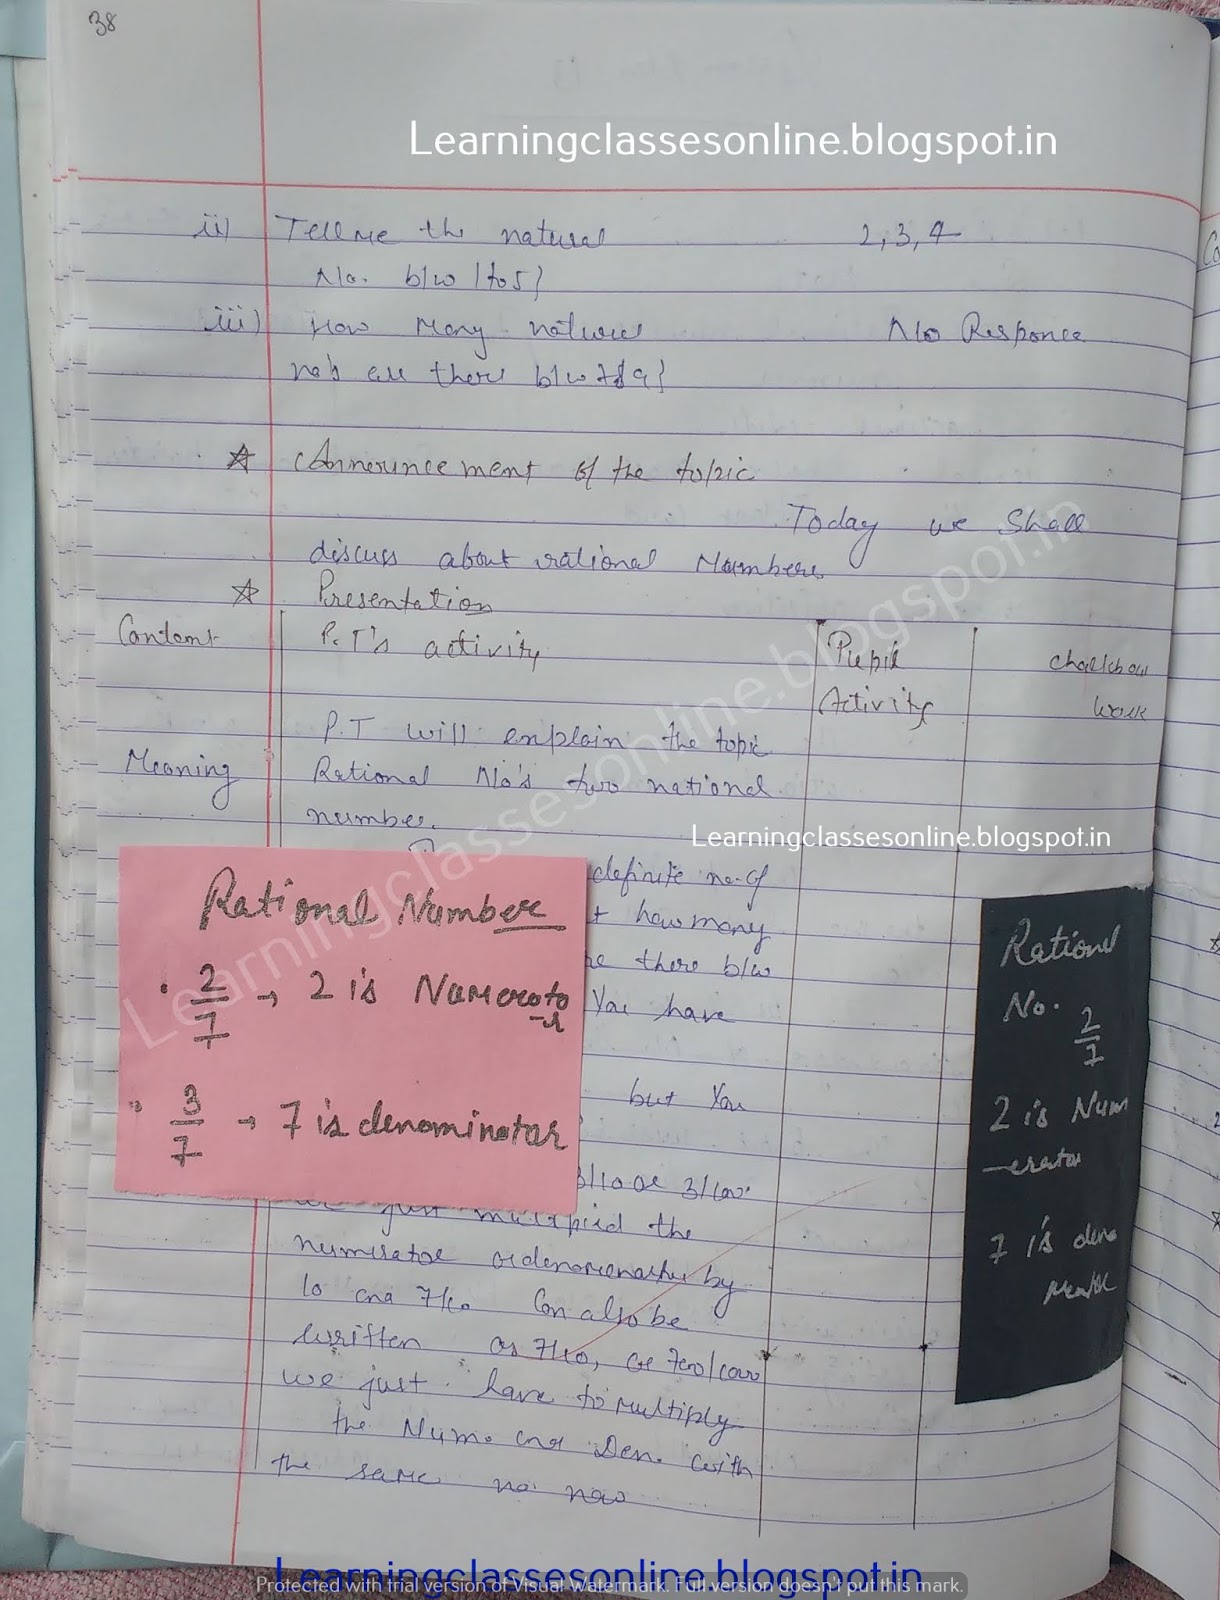 38
Learningclassesonline.blogspot.in
ii) Tell me the natural 2, 3, 4
No. b/w 1 to 5}
iii) How Many natural No Responce
no's are there b/w 7 & 9}
☆ Announcement of the topic
Today we Shall
discuss about rational Numbers
☆ Presentation
Content P.T's activity Pupil Activity Chalkboar work
P.T will explain the topic
Meaning Rational No's two national
number.
Learningclassesonline.blogspot.in
definite no. of
t how many
there b/w
You have
but You
3/10 or
we just multipied the
numerator denomenator by
10 and 7/10 Can also be
written as 7/10, or
we just have to multiply
the Num. and Den. with
the same no now
Rational Number
• 2/7 → 2 is Numerato
-r
" 3/7 → 7 is denominotar
Rational
No. 2/7
2 is Num
-erator
7 is deno
Learningclassesonline.blogspot.in
Learningclassesonline.blogspot.in
Protected with trial version of Visual Watermark. Full version doesn't put this mark.